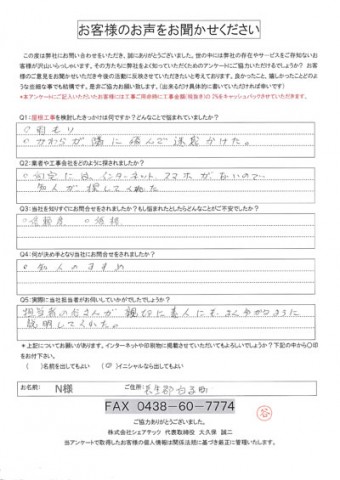 お客様のお声をお聞かせください
この度は弊社にお問い合わせをいただき、誠にありがとうございました。世の中には弊社の存在やサービスをご存知ないお
客様が沢山いらっしゃいます。その方たちに弊社をよく知っていただくためのアンケートにご協力いただけるでしょうか？ お客
様のご意見をお聞かせいただき今後の活動に反映させていきたいと考えております。良かったこと、嬉しかったことどのよ
うな些細な事でも結構です。是非ご協力お願い致します。(出来るだけ具体的に書いていただければ幸いです)
*本アンケートにご記入いただいたお客様には工事ご用命時に工事金額(税抜き)の2%をキャッシュバックさせていただきます。
Q1：屋根工事を検討したきっかけは何ですか？どんなことで悩まれていましたか？
○雨もり
○かわらが隣に飛んで迷惑かけた。
Q2：業者や工事会社をどのように探されましたか？
○自宅には、インターネット、スマホがないので、
知人が探してくれた
Q3：当社を知りすぐにお問合せをされましたか？もし悩まれたとしたらどんなことがご不安でしたか？
○信頼度 ○価格
Q4：何が決めどとなり当社にお問合せをされましたか？
○知人のすすめ
Q5：実際に当社担当者がお伺いしていかがでしたでしょうか？
担当者の
親切に素人にも、よくわかるように
説明してくれた。
＊上記についてお願いがあります。インターネットや印刷物に掲載させていただいてもよろしいでしょうか？下記の中から〇印
をお付け下さい。
( )名前を出してもよい (○)イニシャルなら出してもよい
お名前: N様 ご住所: 長生郡白子町
FAX 0438-60-7774
ご協力ありがとうございました。
株式会社シェアテック 代表取締役 大久保 誠二
当アンケートで取得したお客様の個人情報は関係法規に基づき厳正に管理いたします。